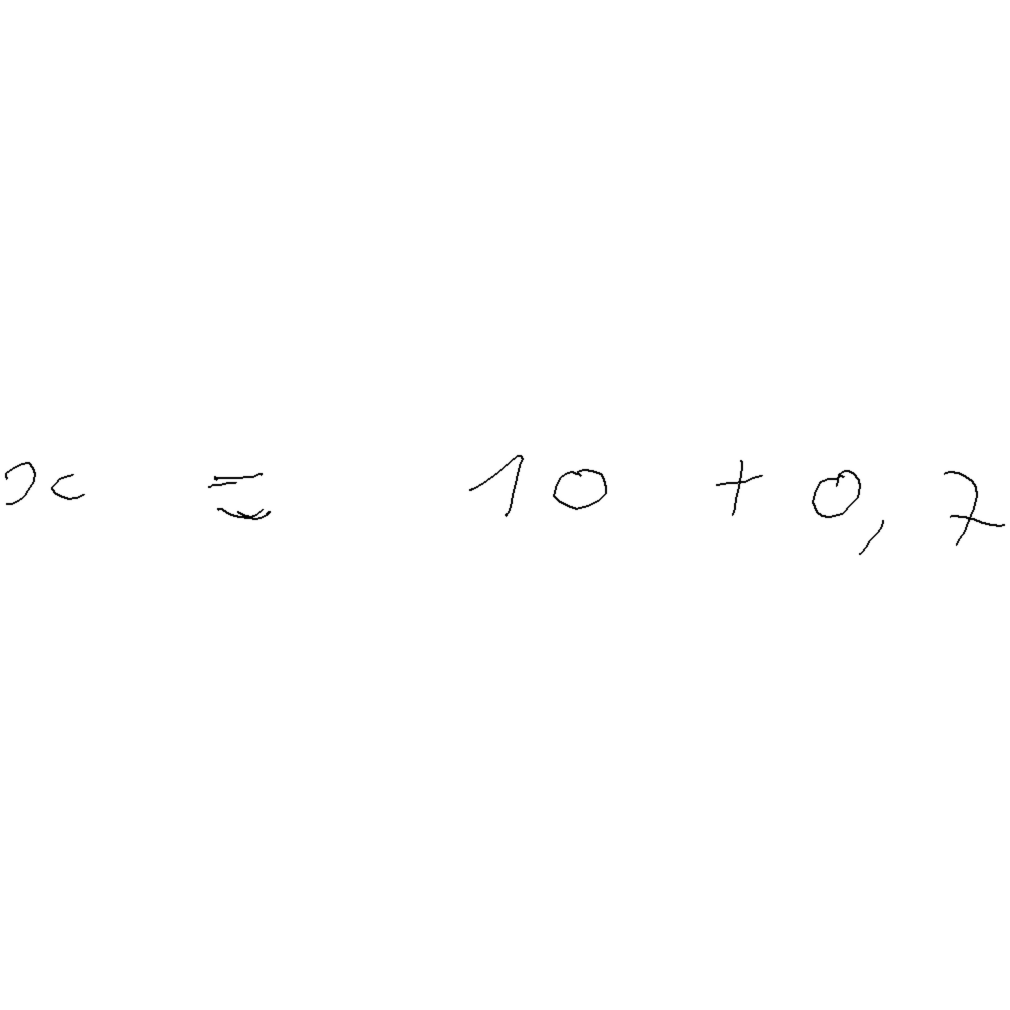 x = 10 + 0,7